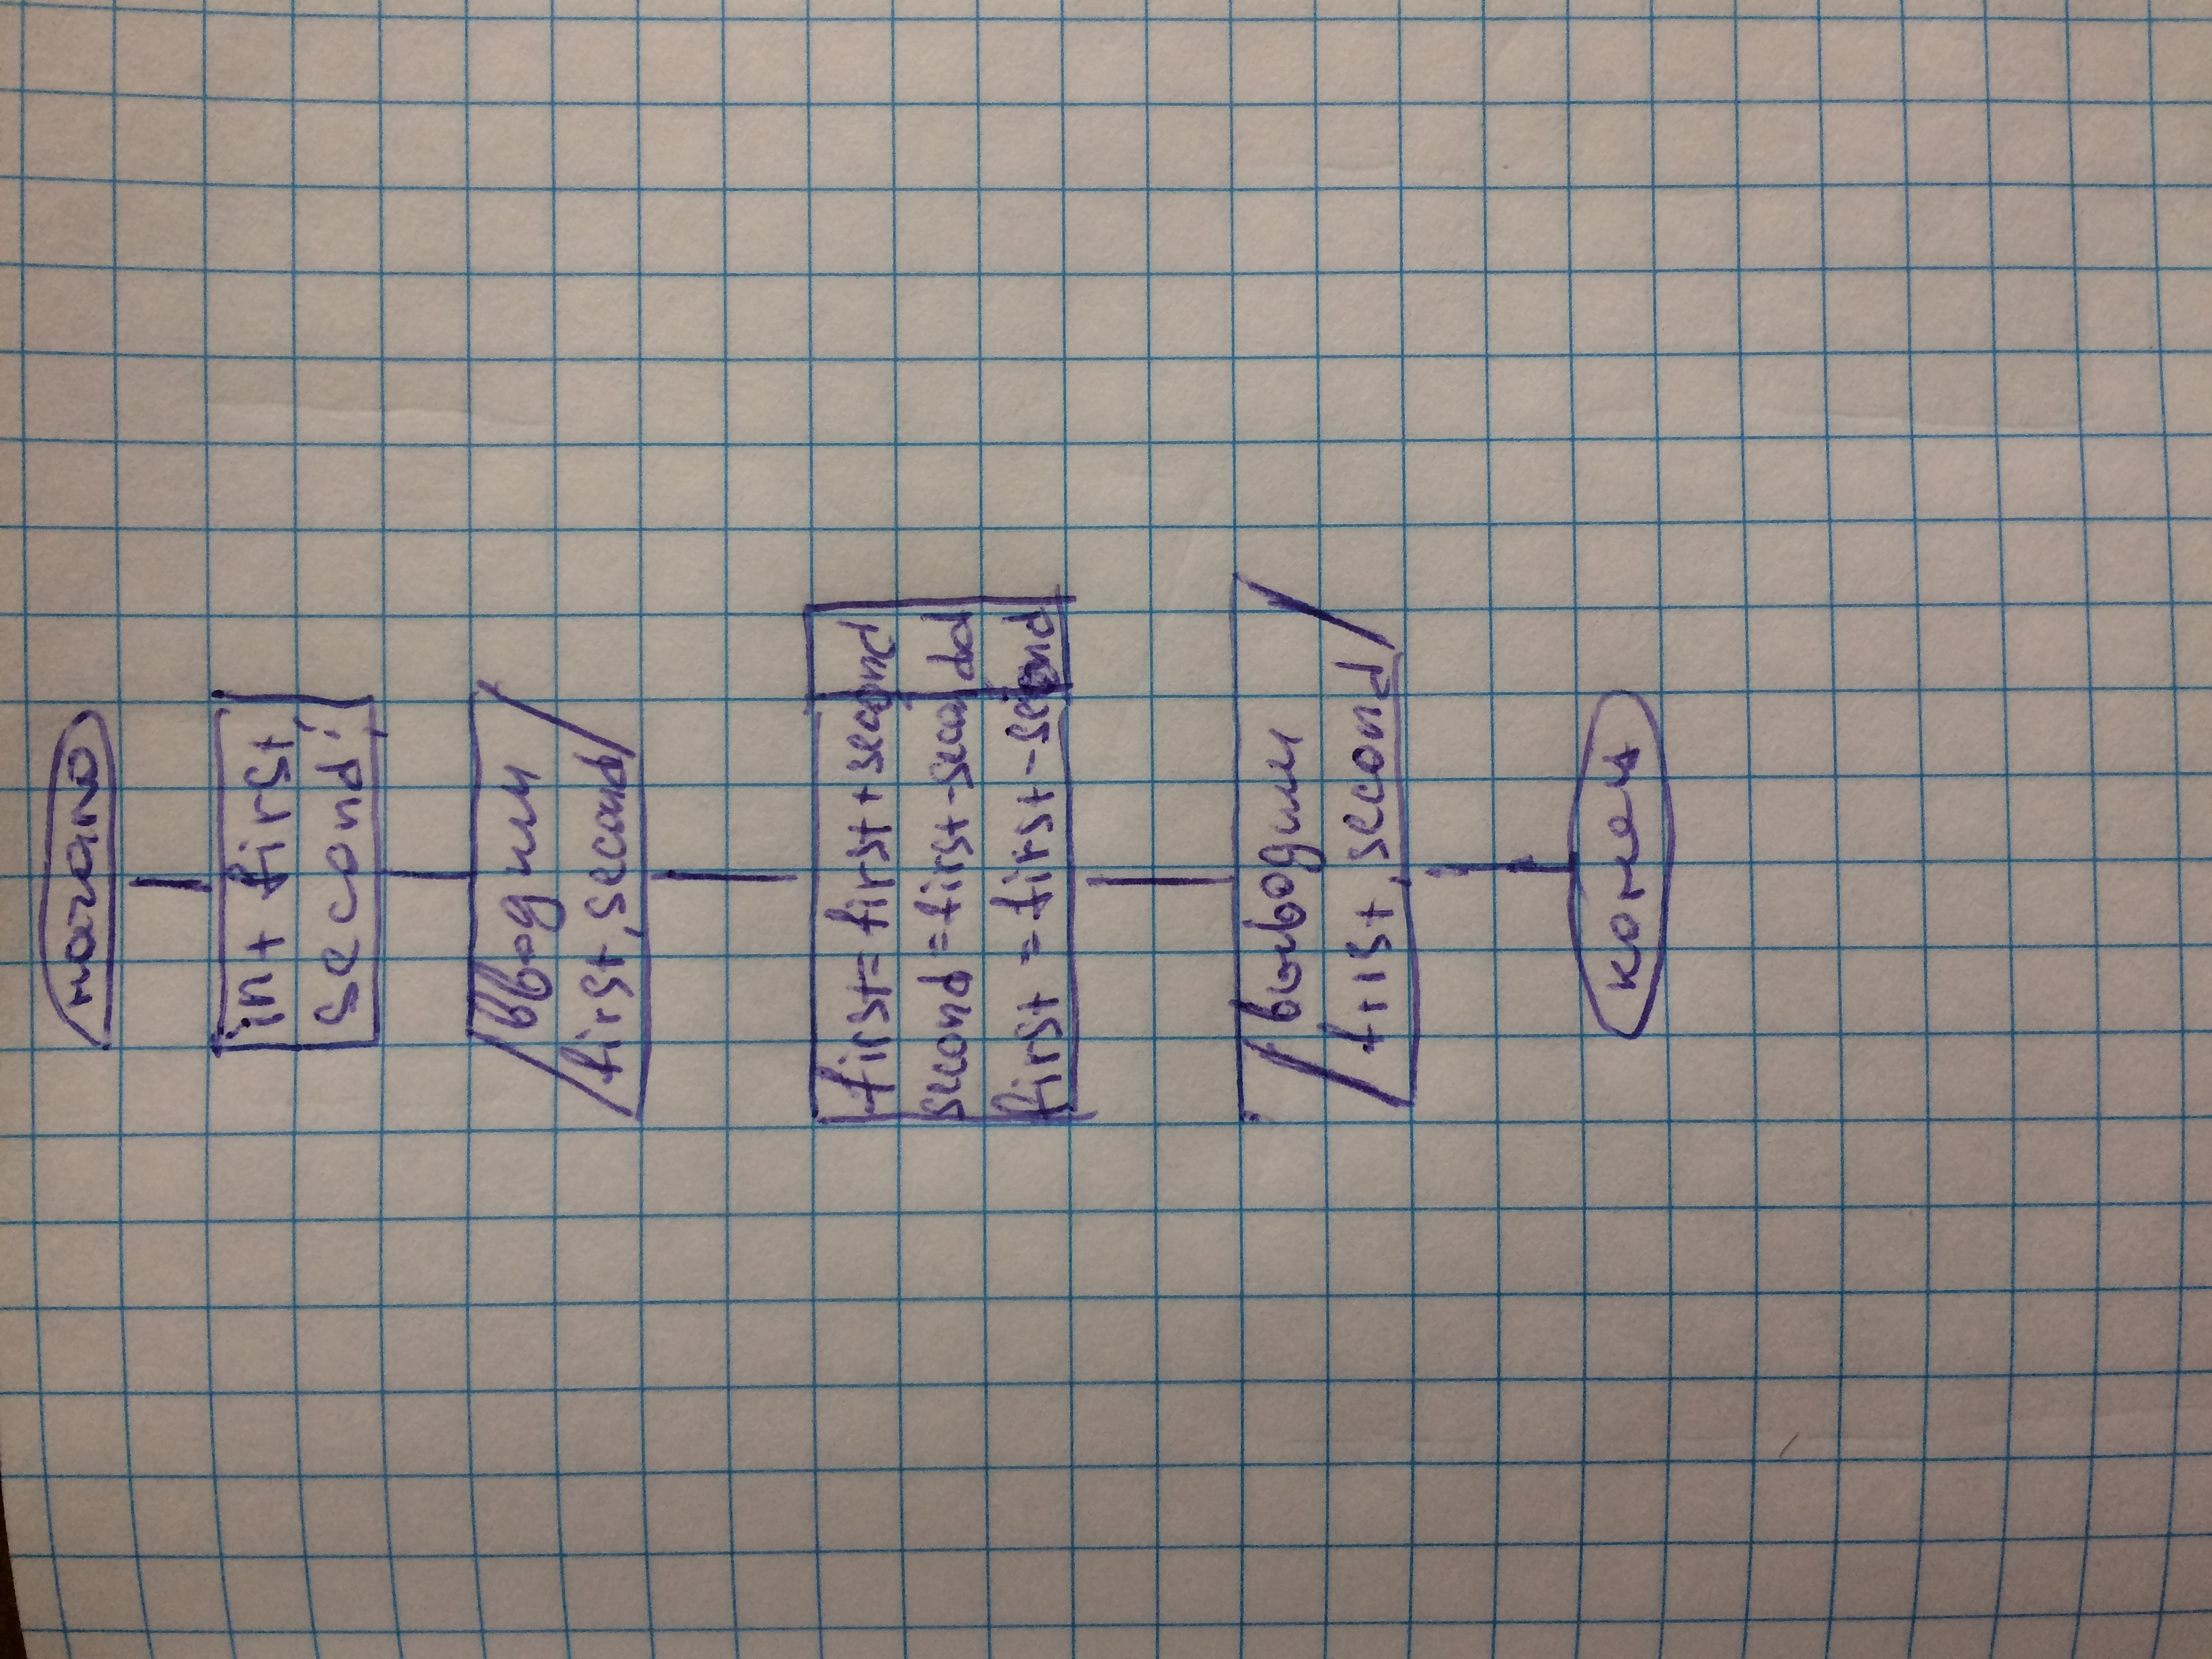 начало
int first,
second;
вводим
first, second
first = first + second
second = first - second
first = first - second
выводим
first, second
конец